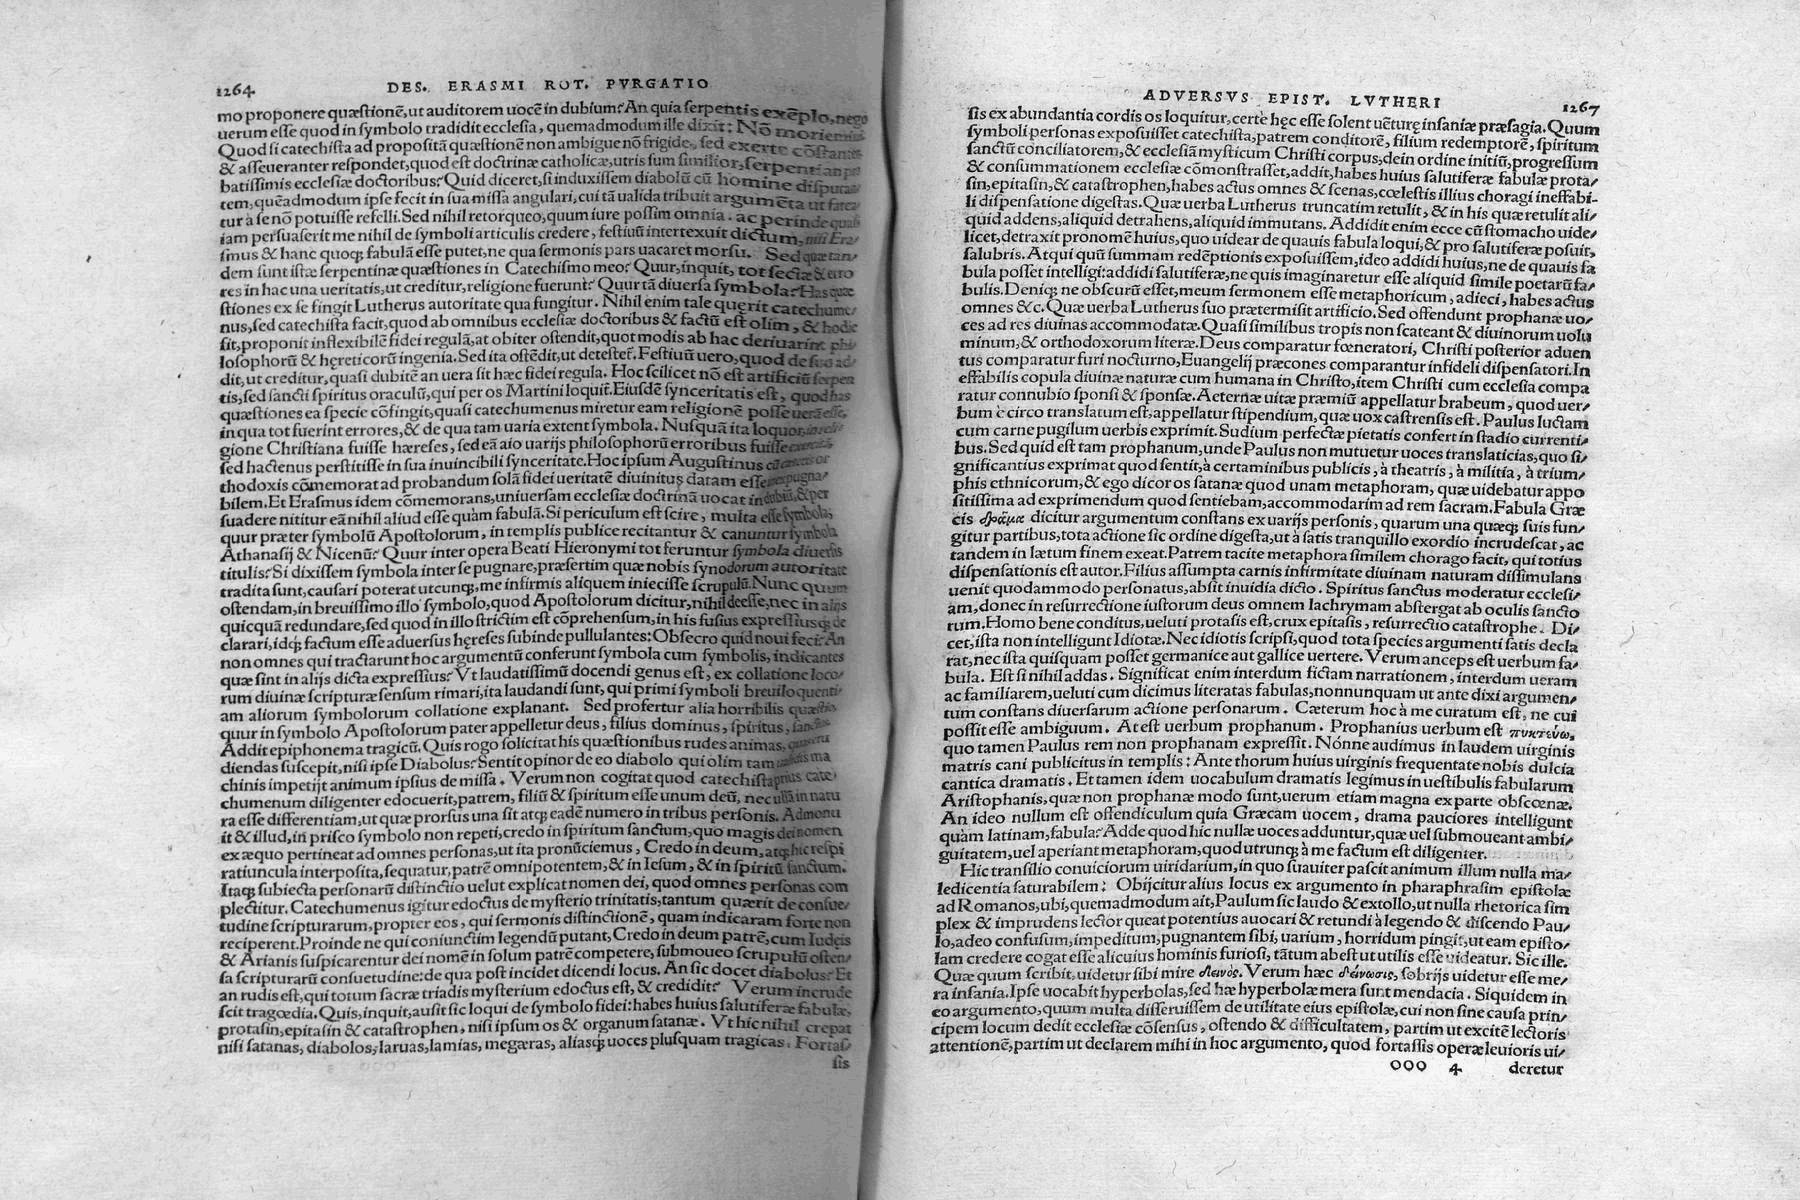 1264 DES. ERASMI ROT. PVRGATIO
mo proponere quæstionẽ, ut auditorem uocẽ in dubium? An quia serpentis exẽplo, nego
uerum esse quod in symbolo tradidit ecclesia, quemadmodum ille dixit: Nõ moriemini
Quod si catechista ad propositã quæstionẽ non ambigue nõ frigide, sed exerte cõstante
& asseueranter respondet, quod est doctrinæ catholicæ, utris sum similior, serpenti an pro
batissimis ecclesiæ doctoribus? Quid diceret, si induxissem diabolũ cũ homine disputan
tem, quẽadmodum ipse fecit in sua missa angulari, cui tã ualida tribuit argumẽta ut fatea
tur à se nõ potuisse refelli. Sed nihil retorqueo, quum iure possim omnia. ac perinde quasi
iam persuaserit me nihil de symboli articulis credere, festiuũ intertexuit dictum, nisi Era⸗
smus & hanc quoq; fabulã esse putet, ne qua sermonis pars uacaret morsu. Sed quæ tan⸗
dem sunt istæ serpentinæ quæstiones in Catechismo meo? Quur, inquit, tot sectæ & erro
res in hac una ueritatis, ut creditur, religione fuerunt? Quur tã diuersa symbola? Has quæ
stiones ex se fingit Lutherus autoritate qua fungitur. Nihil enim tale quęrit catechume⸗
nus, sed catechista facit, quod ab omnibus ecclesiæ doctoribus & factũ est olim, & hodie
fit, proponit inflexibilẽ fidei regulã, at obiter ostendit, quot modis ab hac deriuarint phi
losophorũ & hęreticorũ ingenia. Sed ita ostẽdit, ut detestet. Festiuũ uero, quod de suo ad⸗
dit, ut creditur, quasi dubitẽ an uera sit hæc fidei regula. Hoc scilicet nõ est artificiũ serpen
tis, sed sancti spiritus oraculũ, qui per os Martini loquit. Eiusdẽ synceritatis est, quod has
quæstiones ea specie cõfingit, quasi catechumenus miretur eam religionẽ posse uerã esse,
in qua tot fuerint errores, & de qua tam uaria extent symbola. Nusquã ita loquor, in reli⸗
gione Christiana fuisse hæreses, sed eã aio uarijs philosophorũ erroribus fuisse
sed hactenus perstitisse in sua inuincibili synceritate. Hoc ipsum Augustinus
thodoxis cõmemorat ad probandum solã fidei ueritatẽ diuinitus datam esse inexpugna⸗
bilem. Et Erasmus idem cõmemorans, uniuersam ecclesiæ doctrinã uocat in dubiũ, & per
suadere nititur eã nihil aliud esse quàm fabulã. Si periculum est scire, multa esse symbola,
quur præter symbolũ Apostolorum, in templis publice recitantur & canuntur symbola
Athanasij & Nicenũ? Quur inter opera Beati Hieronymi tot feruntur symbola diuersis
titulis? Si dixissem symbola inter se pugnare, præsertim quæ nobis synodorum autoritate
tradita sunt, causari poterat utcunq;, me infirmis aliquem iniecisse scrupulũ. Nunc quum
ostendam, in breuissimo illo symbolo, quod Apostolorum dicitur, nihil deesse, nec in alijs
quicquã redundare, sed quod in illo strictim est cõprehensum, in his fusius expressiusq; de
clarari, idq; factum esse aduersus hęreses subinde pullulantes: Obsecro quid noui feci? An
non omnes qui tractarunt hoc argumentũ conferunt symbola cum symbolis, indicantes
quæ sint in alijs dicta expressius? Vt laudatissimũ docendi genus est, ex collatione loco⸗
rum diuinæ scripturæ sensum rimari, ita laudandi sunt, qui primi symboli breuiloquenti⸗
am aliorum symbolorum collatione explanant. Sed profertur alia horribilis quæstio
quur in symbolo Apostolorum pater appelletur deus, filius dominus, spiritus, sanctus
Addit epiphonema tragicũ, Quis rogo solicitat his quæstionibus rudes animas,
diendas suscepit, nisi ipse Diabolus? Sentit opinor de eo diabolo qui olim tam ma
chinis impetijt animum ipsius de missa. Verum non cogitat quod catechista prius cate⸗
chumenum diligenter edocuerit, patrem, filiũ & spiritum esse unum deũ, nec ullã in natu
ra esse differentiam, ut quæ prorsus una sit atq; eadẽ numero in tribus personis. Admonu
it & illud, in prisco symbolo non repeti, credo in spiritum sanctum, quo magis dei nomen
ex æquo pertineat ad omnes personas, ut ita pronũciemus, Credo in deum, atq; hic respi
ratiuncula interposita, sequatur, patrẽ omnipotentem, & in Iesum, & in spiritũ sanctum.
Itaq; subiecta personarũ distinctio uelut explicat nomen dei, quod omnes personas com
plectitur. Catechumenus igitur edoctus de mysterio trinitatis, tantum quærit de consue⸗
tudine scripturarum, propter eos, qui sermonis distinctionẽ, quam indicaram forte non
reciperent. Proinde ne qui coniunctim legendũ putant, Credo in deum patrẽ, cum Iudęis
& Arianis suspicarentur dei nomẽ in solum patrẽ competere, submoueo scrupulũ osten⸗
sa scripturarũ consuetudine: de qua post incidet dicendi locus. An sic docet diabolus? Et
an rudis est, qui totum sacræ triadis mysterium edoctus est, & credidit? Verum incrude
scit tragœdia. Quis, inquit, ausit sic loqui de symbolo fidei: habes huius salutiferæ fabulæ,
protasin, epitasin & catastrophen, nisi ipsum os & organum satanæ. Vt hic nihil crepat
nisi satanas, diabolos, laruas, lamias, megæras, aliasq; uoces plusquam tragicas. Fortas⸗
sis
ADVERSVS EPIST. LVTHERI 1267
sis ex abundantia cordis os loquitur, certe hęc esse solent uẽturę insaniæ præsagia. Quum
symboli personas exposuisset catechista, patrem conditorẽ, filium redemptorẽ, spiritum
sanctũ conciliatorem, & ecclesiã mysticum Christi corpus, dein ordine initiũ, progressum
& consummationem ecclesiæ cõmonstrasset, addit, habes huius salutiferæ fabulæ prota⸗
sin, epitasin, & catastrophen, habes actus omnes & scenas, cœlestis illius choragi ineffabi⸗
li dispensatione digestas. Quæ uerba Lutherus truncatim retulit, & in his quæ retulit ali⸗
quid addens, aliquid detrahens, aliquid immutans. Addidit enim ecce cũ stomacho uide⸗
licet, detraxit pronomẽ huius, quo uidear de quauis fabula loqui, & pro salutiferæ posuit,
salubris. Atqui quũ summam redẽptionis exposuissem, ideo addidi huius, ne de quauis fa
bula posset intelligi: addidi salutiferæ, ne quis imaginaretur esse aliquid simile poetarũ fa⸗
bulis. Deniq; ne obscurũ esset, meum sermonem esse metaphoricum, adieci, habes actus
omnes &c. Quæ uerba Lutherus suo prætermisit artificio. Sed offendunt prophanæ uo⸗
ces ad res diuinas accommodatæ. Quasi similibus tropis non scateant & diuinorum uolu
minum, & orthodoxorum literæ. Deus comparatur fœneratori, Christi posterior aduen
tus comparatur furi nocturno, Euangelij præcones comparantur infideli dispensatori. In
effabilis copula diuinæ naturæ cum humana in Christo, item Christi cum ecclesia compa
ratur connubio sponsi & sponsæ. Aeternæ uitæ præmiũ appellatur brabeum, quod uer⸗
bum è circo translatum est, appellatur stipendium, quæ uox castrensis est. Paulus luctam
cum carne pugilum uerbis exprimit. Sudium perfectæ pietatis confert in stadio currenti⸗
bus. Sed quid est tam prophanum, unde Paulus non mutuetur uoces translaticias, quo si⸗
gnificantius exprimat quod sentit, à certaminibus publicis, à theatris, à militia, à trium⸗
phis ethnicorum, & ego dicor os satanæ quod unam metaphoram, quæ uidebatur appo
sitissima ad exprimendum quod sentiebam, accommodarim ad rem sacram. Fabula Græ
cis δρᾶμα dicitur argumentum constans ex uarijs personis, quarum una quæq; suis fun⸗
gitur partibus, tota actione sic ordine digesta, ut à satis tranquillo exordio incrudescat, ac
tandem in lætum finem exeat. Patrem tacite metaphora similem chorago facit, qui totius
dispensationis est autor. Filius assumpta carnis infirmitate diuinam naturam dissimulans
uenit quodammodo personatus, absit inuidia dicto. Spiritus sanctus moderatur ecclesi⸗
am, donec in resurrectione iustorum deus omnem lachrymam abstergat ab oculis sancto
rum. Homo bene conditus, ueluti protasis est, crux epitasis, resurrectio catastrophe. Di⸗
cet, ista non intelligunt Idiotæ. Nec idiotis scripsi, quod tota species argumenti satis decla
rat, nec ista quisquam posset germanice aut gallice uertere. Verum anceps est uerbum fa⸗
bula. Est si nihil addas. Significat enim interdum fictam narrationem, interdum ueram
ac familiarem, ueluti cum dicimus literatas fabulas, nonnunquam ut ante dixi argumen⸗
tum constans diuersarum actione personarum. Cæterum hoc à me curatum est, ne cui
possit esse ambiguum. At est uerbum prophanum. Prophanius uerbum est πυκτεύω,
quo tamen Paulus rem non prophanam expressit. Nónne audimus in laudem uirginis
matris cani publicitus in templis: Ante thorum huius uirginis frequentate nobis dulcia
cantica dramatis. Et tamen idem uocabulum dramatis legimus in uestibulis fabularum
Aristophanis, quæ non prophanæ modo sunt, uerum etiam magna ex parte obscœnæ.
An ideo nullum est offendiculum quia Græcam uocem, drama pauciores intelligunt
quàm latinam, fabula? Adde quod hic nullæ uoces adduntur, quæ uel submoueant ambi⸗
guitatem, uel aperiant metaphoram, quod utrunq; à me factum est diligenter.
Hic transilio conuiciorum uiridarium, in quo suauiter pascit animum illum nulla ma⸗
ledicentia saturabilem: Obijcitur alius locus ex argumento in pharaphrasim epistolæ
ad Romanos, ubi, quemadmodum ait, Paulum sic laudo & extollo, ut nulla rhetorica sim
plex & imprudens lector queat potentius auocari & retundi à legendo & discendo Pau⸗
lo, adeo confusum, impeditum, pugnantem sibi, uarium, horridum pingit, ut eam episto⸗
lam credere cogat esse alicuius hominis furiosi, tãtum abest ut utilis esse uideatur. Sic ille.
Quæ quum scribit, uidetur sibi mire δεινὸς. Verum hæc δείνωσις, sobrijs uidetur esse me⸗
ra insania. Ipse uocabit hyperbolas, sed hæ hyperbolæ mera sunt mendacia. Siquidem in
eo argumento, quum multa disseruissem de utilitate eius epistolæ, cui non sine causa prin⸗
cipem locum dedit ecclesiæ cõsensus, ostendo & difficultatem, partim ut excitẽ lectoris
attentionẽ, partim ut declarem mihi in hoc argumento, quod fortassis operæ leuioris ui⸗
ooo 4 deretur